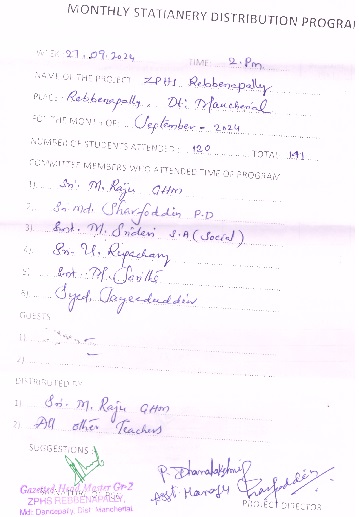 MONTHLY STATIANERY DISTRIBUTION PROGRA
DATE: 27.09.2024 TIME: 2. Pm
NAME OF THE PROJECT: ZPHS Rebbenapally
PLACE: Rebbenapally. Dt: Mancherial
FOR THE MONTH OF: September - 2024
NUMBER OF STUDENTS ATTENDED: 120 TOTAL: 141
COMMITTEE MEMBERS WHO ATTENDED TIME OF PROGRAM
1) Sri. M. Raju GHM
2. Sri Md. Sharfoddin P.D
3) Smt. M. Sridevi S.A (Social)
4) Sri. U.
5) Smt. M.
6) Syed.
GUESTS
1)
2)
DISTRIBUTED BY
1) Sri. M. Raju GHM
2) All other Teachers
SUGGESTIONS
Gazetted Head Master Gr-2
P. Dhanalakshmi
ZPHS
Asst. Manager
Sharfoddin
Md: Dandepally, Dist: Mancherial
PROJECT DIRECTOR